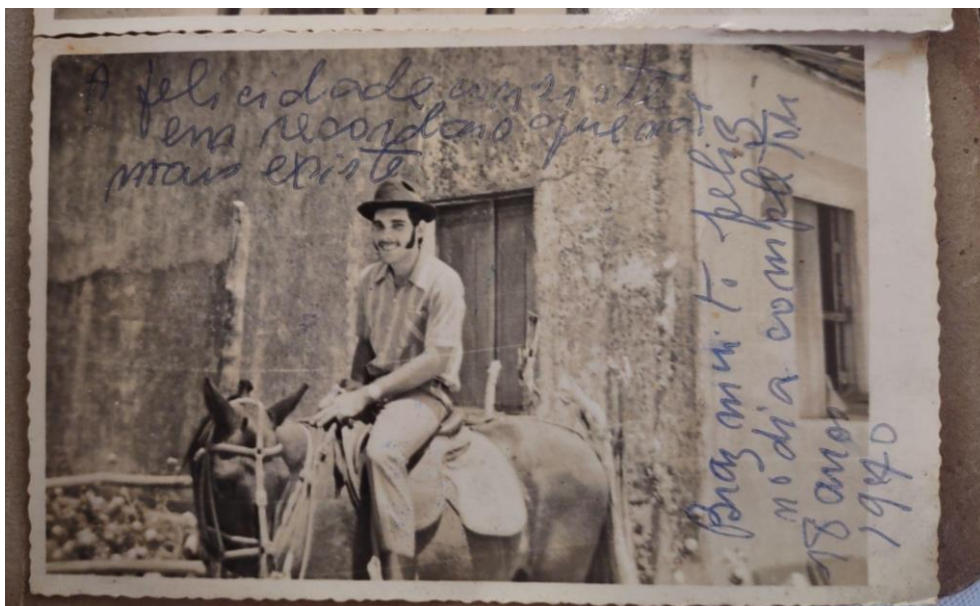 A felicidade consiste
em recordar o que não
mais existe
Braz muito feliz
no dia completou
18 anos
1970